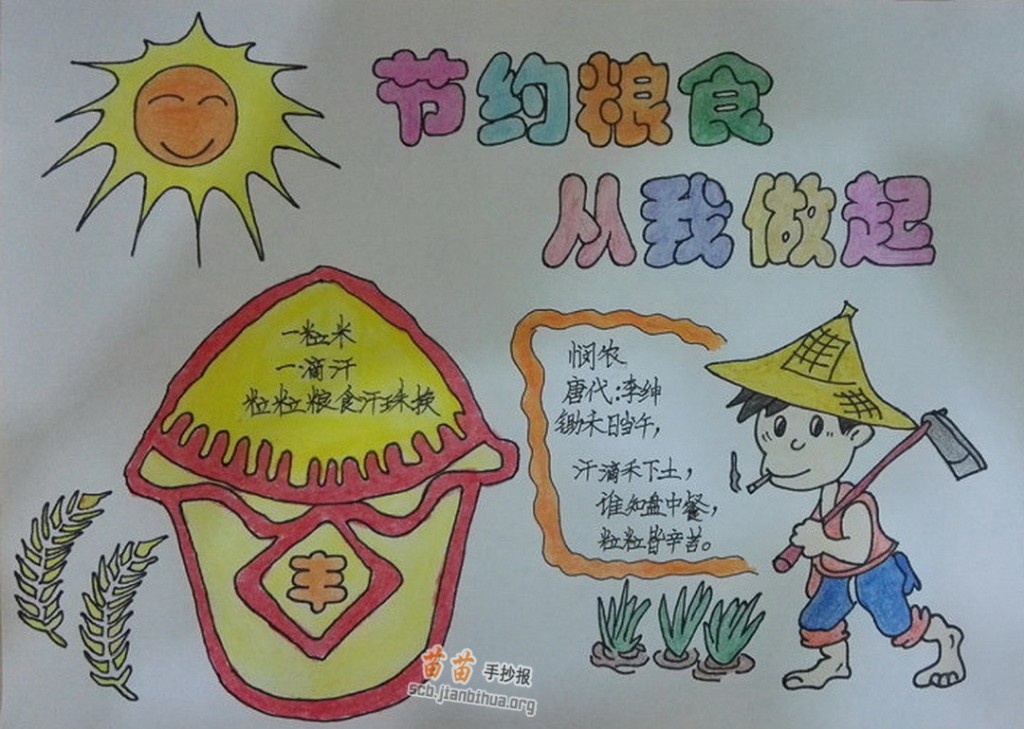 节约粮食
从我做起
一粒米
一滴汗
粒粒粮食汗珠换
悯农
唐代:李绅
锄禾日当午,
汗滴禾下土,
谁知盘中餐,
粒粒皆辛苦。
丰
苗苗手抄报
scb.jianbihua.org